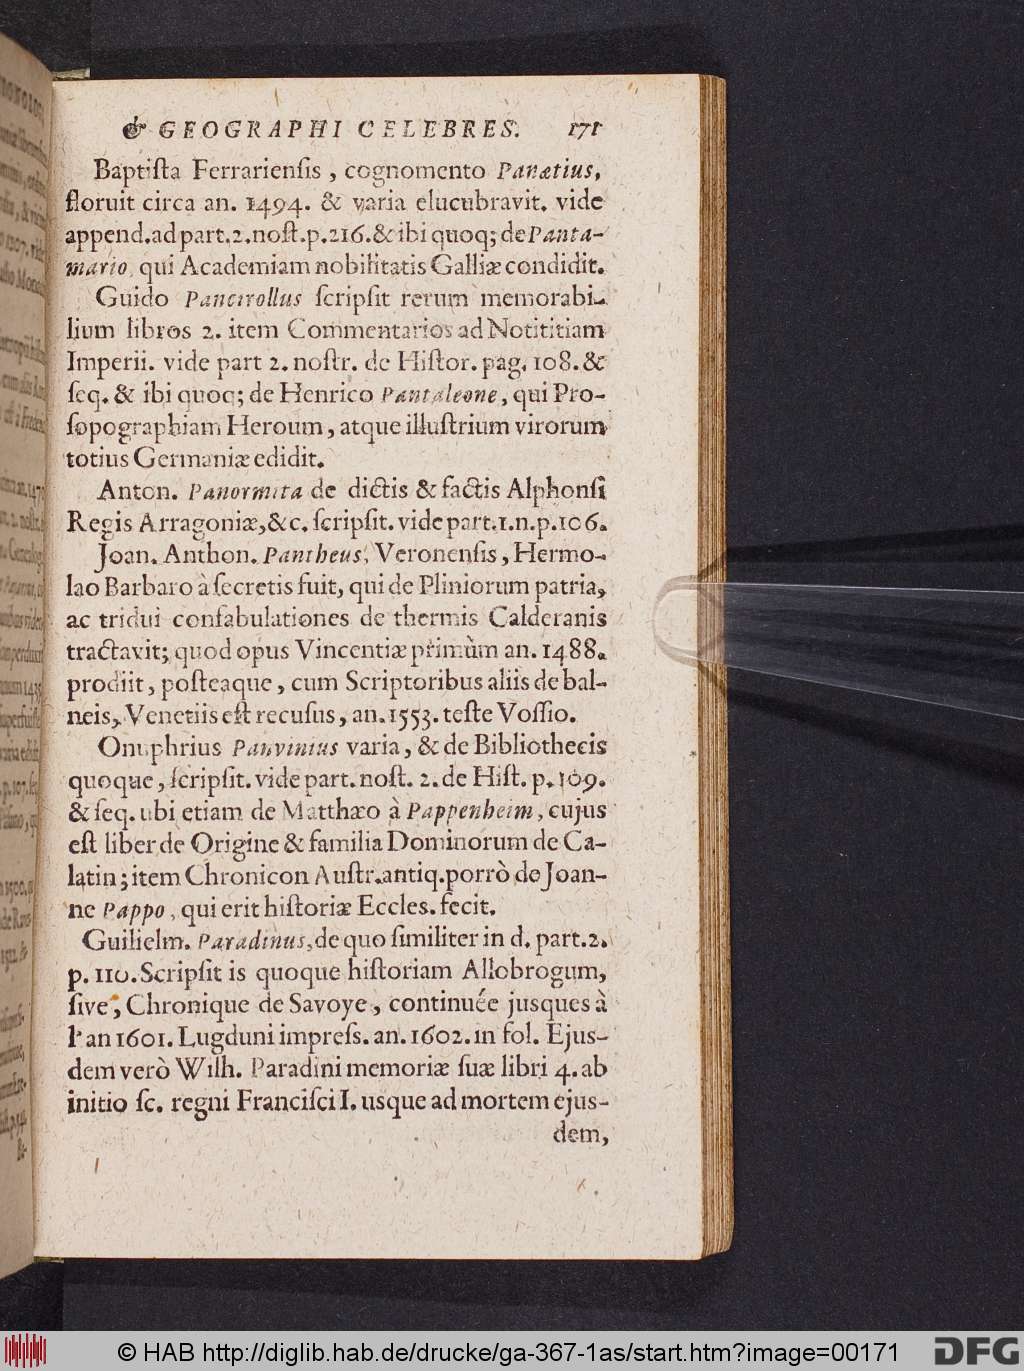 & GEOGRAPHI CELEBRES. 171
Baptiſta Ferrarienſis, cognomento Panætius,
floruit circa an. 1494. & varia elucubravit. vide
append. ad part. 2. noſt. p. 216. & ibi quoq; de Panta-
mario, qui Academiam nobilitatis Galliæ condidit.
Guido Pancirollus ſcripſit rerum memorabi-
lium libros 2. item Commentarios ad Notititiam
Imperii. vide part 2. noſtr. de Hiſtor. pag. 108. &
ſeq. & ibi quoq; de Henrico Pantaleone, qui Pro-
ſopographiam Heroum, atque illuſtrium virorum
totius Germaniæ edidit.
Anton. Panormita de dictis & factis Alphonſi
Regis Arragoniæ, &c. ſcripſit. vide part. 1. n. p. 106.
Joan. Anthon. Pantheus, Veronenſis, Hermo-
lao Barbaro à ſecretis fuit, qui de Pliniorum patria,
ac tridui confabulationes de thermis Calderanis
tractavit; quod opus Vincentiæ primùm an. 1488.
prodiit, poſteaque, cum Scriptoribus aliis de bal-
neis, Venetiis eſt recuſus, an. 1553. teſte Voſſio.
Onuphrius Panvinius varia, & de Bibliothecis
quoque, ſcripſit. vide part. noſt. 2. de Hiſt. p. 109.
& ſeq. ubi etiam de Matthæo à Pappenheim, cujus
eſt liber de Origine & familia Dominorum de Ca-
latin; item Chronicon Auſtr. antiq. porrò de Joan-
ne Pappo, qui erit hiſtoriæ Eccleſ. fecit.
Guilielm. Paradinus, de quo ſimiliter in d. part. 2.
p. 110. Scripſit is quoque hiſtoriam Allobrogum,
ſive, Chronique de Savoye, continuée jusques à
l'an 1601. Lugduni impreſs. an. 1602. in fol. Ejus-
dem verò Wilh. Paradini memoriæ ſuæ libri 4. ab
initio ſc. regni Franciſci I. usque ad mortem ejus-
dem,
© HAB http://diglib.hab.de/drucke/ga-367-1as/start.htm?image=00171
DFG